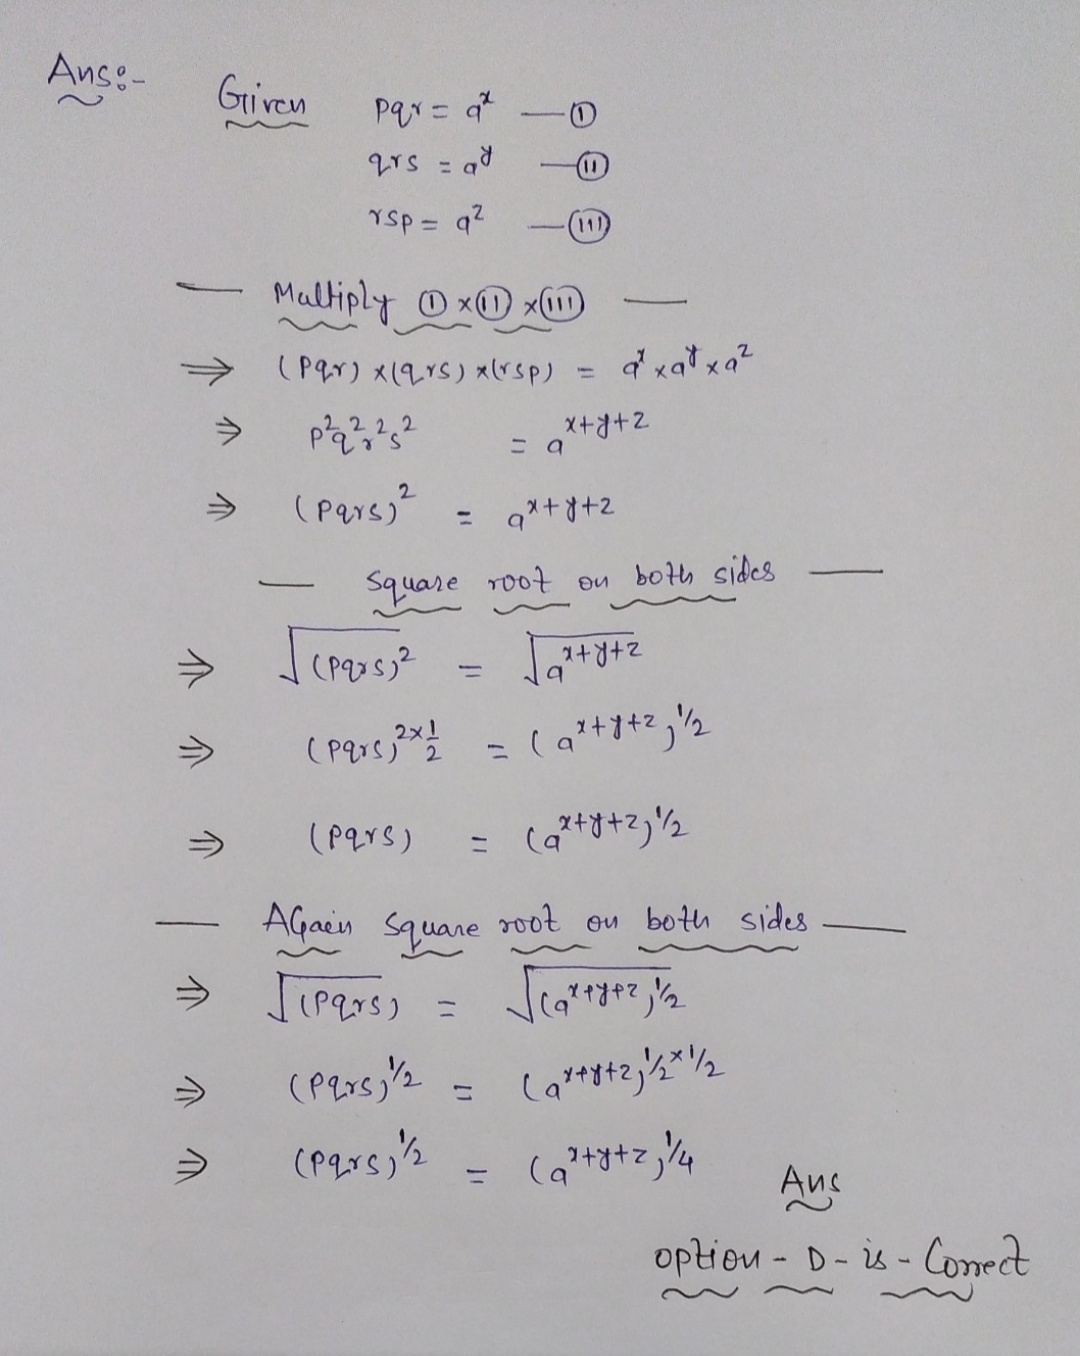 Ans:-
Given pqr = a^x — (I)
qrs = a^y — (II)
rsp = a^z — (III)
— Multiply (I) × (II) × (III) —
⇒ (pqr) × (qrs) × (rsp) = a^x × a^y × a^z
⇒ p²q²r²s² = a^(x+y+z)
⇒ (pqrs)² = a^(x+y+z)
— Square root on both sides —
⇒ √(pqrs)² = √a^(x+y+z)
⇒ (pqrs)^(2×1/2) = (a^(x+y+z))^(1/2)
⇒ (pqrs) = (a^(x+y+z))^(1/2)
— AGain square root on both sides —
⇒ √(pqrs) = √(a^(x+y+z))^(1/2)
⇒ (pqrs)^(1/2) = (a^(x+y+z))^(1/2×1/2)
⇒ (pqrs)^(1/2) = (a^(x+y+z))^(1/4)
Ans
option - D - is - Correct